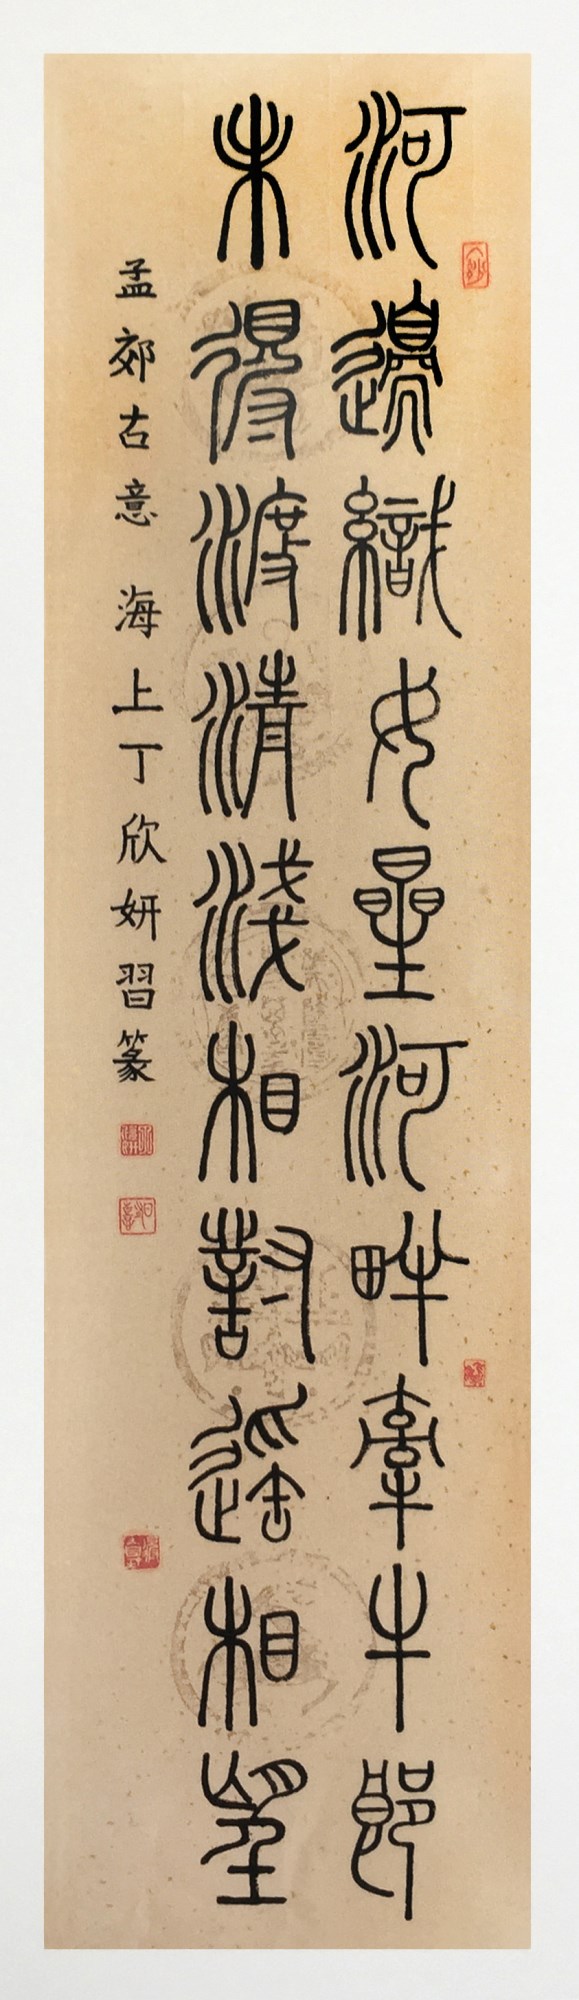 河邊織女星河畔牽牛郎
未得渡清淺相對遙相望
孟郊古意 海上丁欣妍習篆